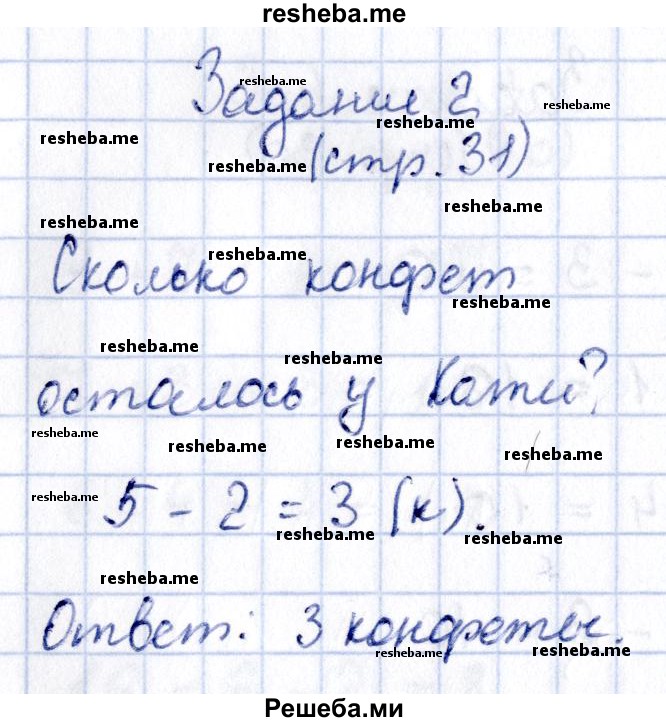 resheba.me
resheba.me
Задание 2
resheba.me
resheba.me
resheba.me
resheba.me
(стр. 31)
resheba.me
resheba.me
Сколько конфет
resheba.me
resheba.me
resheba.me
resheba.me
осталось у Кати?
resheba.me
resheba.me
resheba.me
resheba.me
resheba.me
5 - 2 = 3 (к).
resheba.me
resheba.me
resheba.me
Ответ: 3 конфеты.
resheba.me
resheba.me
Решеба.ми